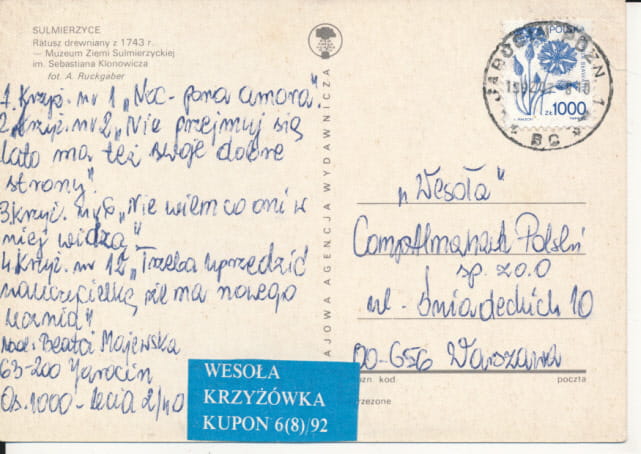 SULMIERZYCE
Ratusz drewniany z 1743 r.
— Muzeum Ziemi Sulmierzyckiej
im. Sebastiana Klonowicza
fot. A. Ruckgaber
1. Krzyż. nr 1 „Noc - pora amora".
2. Krzyż. nr 2 „Nie przejmuj się
lato ma też swoje dobre
strony".
3. Krzyż. nr 6 „Nie wiem co oni w
niej widzą"
4. Krzyż. nr 12 „Trzeba uprzedzić
nauczycielkę że ma nowego
ucznia"
Nad. Beata Majewska
63-200 Jarocin
Os. 1000-lecia 2/40
WESOŁA
KRZYŻÓWKA
KUPON 6(8)/92
AJOWA AGENCJA WYDAWNICZA
POLSKA
zł 1000
POZN. 1
BC
„Wesoła"
CompAlmanach Polski
sp. z o.o
ul. Śniadeckich 10
00-656 Warszawa
kod
poczta